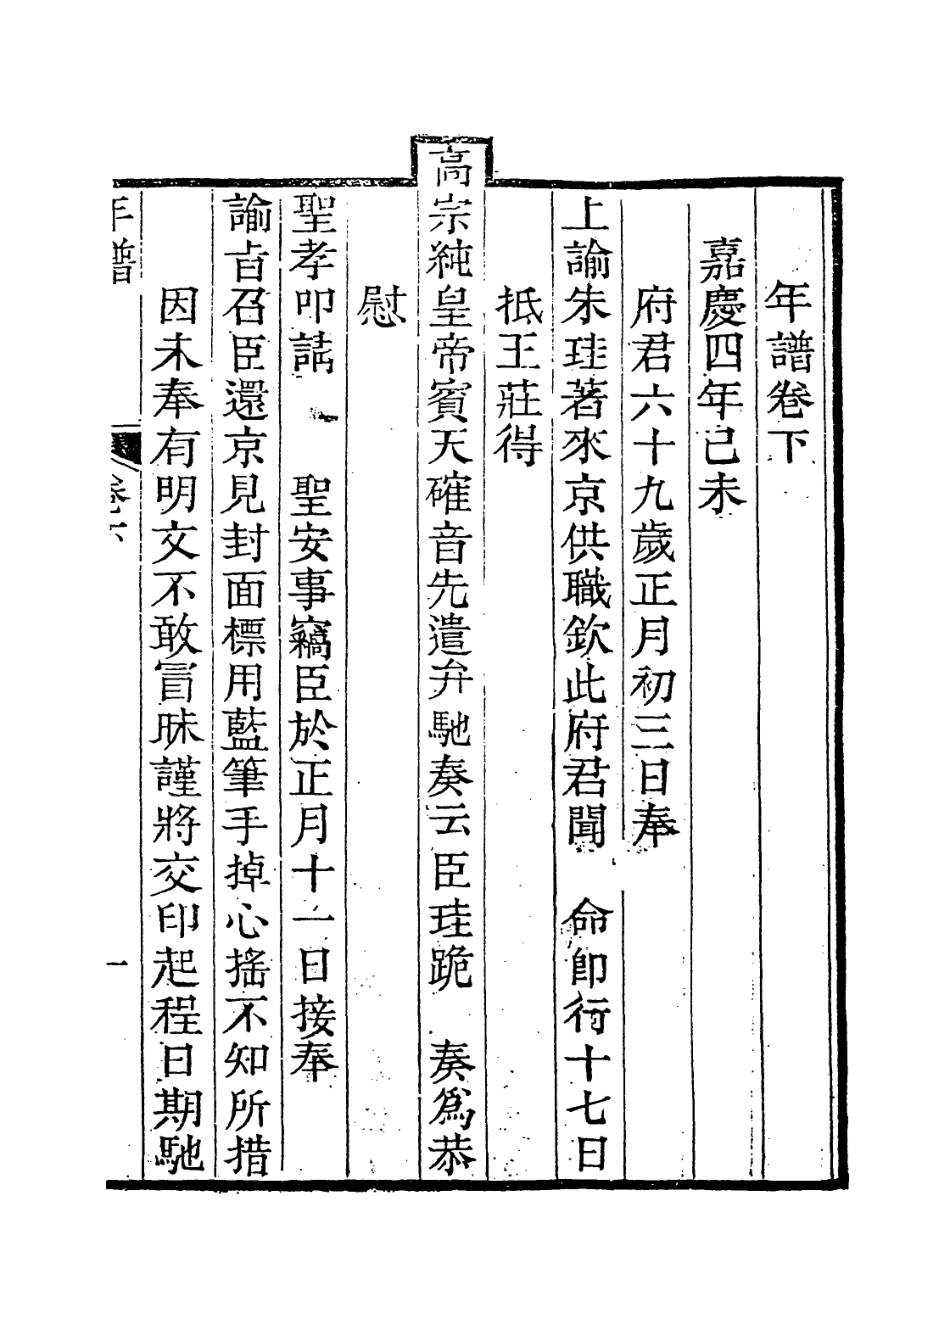 年譜卷下
嘉慶四年己未
府君六十九歲正月初三日奉
上諭朱珪著來京供職欽此府君聞　命即行十七日
抵王莊得
高宗純皇帝賓天確音先遣弁馳奏云臣珪跪　奏爲恭
慰
聖孝叩請　聖安事竊臣於正月十一日接奉
諭旨召臣還京見封面標用藍筆手掉心搖不知所措
因未奉有明文不敢冒昧謹將交印起程日期馳
年譜　卷下　一